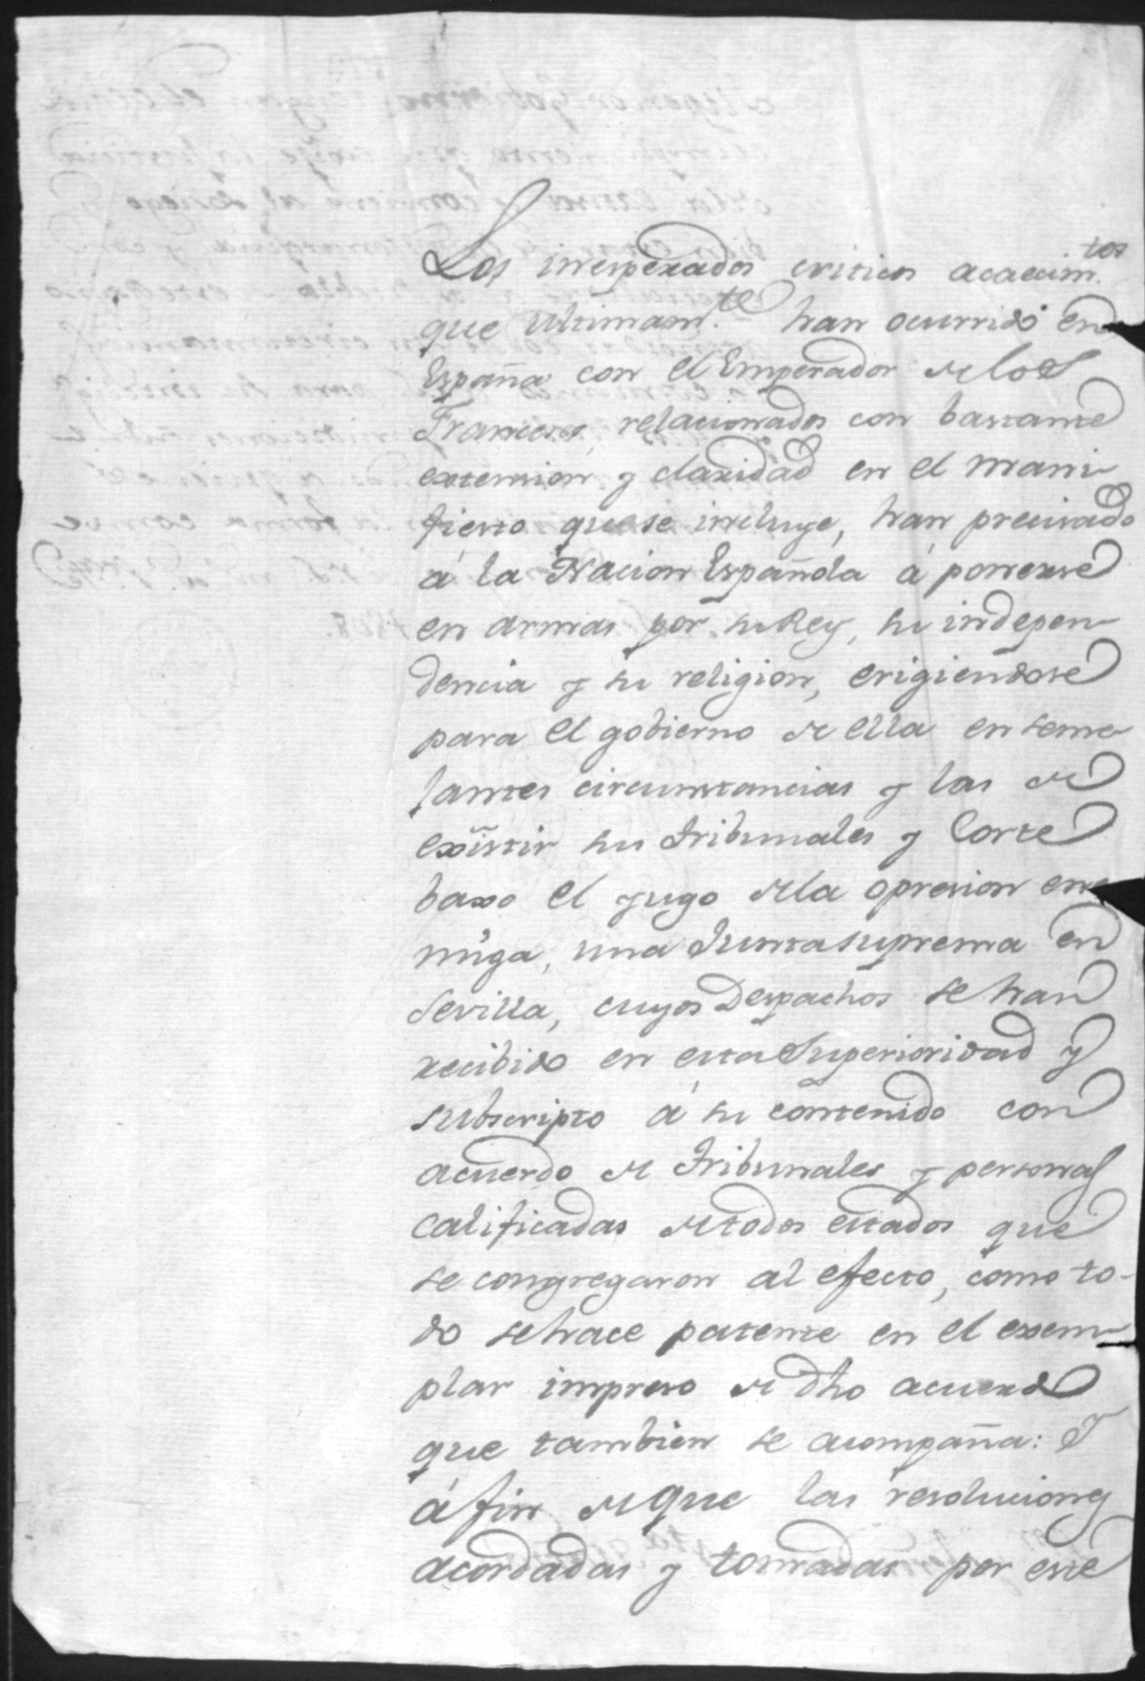 Los inesperados criticos acaecim.tos
que ultimam.te han ocurrido en
España con el Emperador de los
Franceses relacionados con bastante
extension y claridad en el mani-
fiesto que se incluye, han precisado
á la Nacion Española á ponerse
en armas por su Rey, su indepen-
dencia y su religion, erigiendose
para el gobierno de ella en seme-
jantes circunstancias y las de
existir sus tribunales y Corte
baxo el yugo dela opresion ene-
miga, una Junta suprema en
Sevilla, cuyos Despachos se han
recibido en esta Superioridad y
subscripto á su contenido con
acuerdo de tribunales y personas
calificadas de todos estados que
se congregaron al efecto, como to-
do se hace patente en el exem-
plar impreso de dho acuerdo
que tambien se acompaña: Y
á fin de que las resoluciones
acordadas y tomadas por este